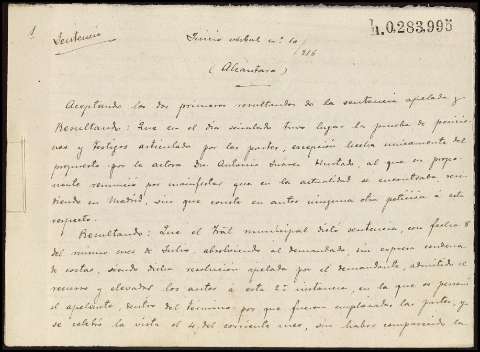 1
Sentencia
Juicio verbal nº 10/216
h.0.283,995
(Alcántara)
Aceptando los dos primeros resultandos de la sentencia apelada y
Resultando: Que en el dia señalado tuvo lugar la prueba de posicio
nes y testigos articulada por las partes, excepción hecha unicamente del
propuesto por la actora Dn Antonio Suárez Hurtado al que su propo
nente renunció por manifestar que en la actualidad se encontraba resi
diendo en Madrid, sin que conste en autos ninguna otra petición á este
respecto.
Resultando: Que el Tral municipal dictó sentencia, con fecha 8
del mismo mes de Julio, absolviendo al demandado, sin expresa condena
de costas, siendo dicha resolución apelada por el demandante, admitido el
recurso y elevados los autos á esta 2ª instancia, en la que se personó
el apelante, dentro del término por que fueron emplazadas las partes, y
se celebró la vista el 4 del corriente mes, sin haber comparecido la